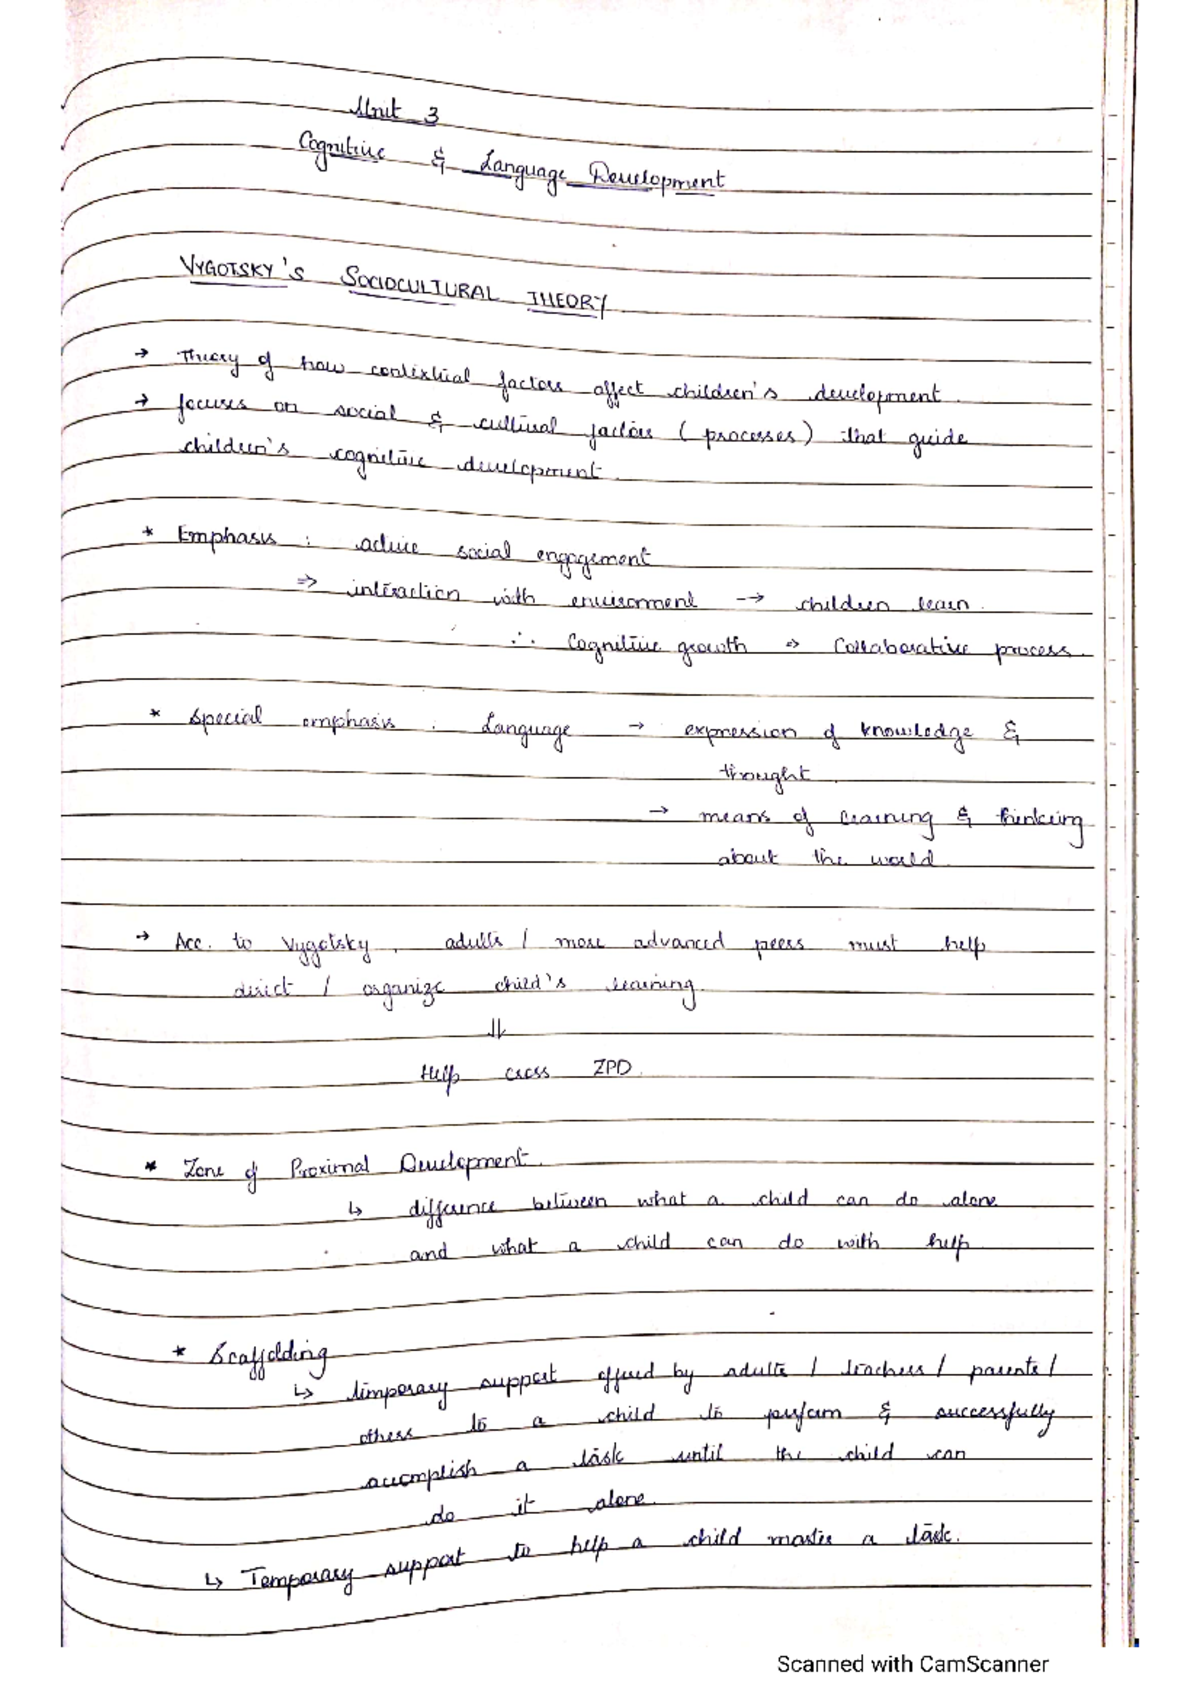 Unit 3
Cognitive & Language Development
VYGOTSKY'S SOCIOCULTURAL THEORY
→ Theory of how contextual factors affect children's development.
→ focuses on social & cultural factors (processes) that guide
children's cognitive development.
* Emphasis : active social engagement
⇒ interaction with environment → children learn.
∴ Cognitive growth ⇒ Collaborative process.
* Special emphasis : Language → expression of knowledge &
thought.
→ means of learning & thinking
about the world.
→ Acc. to Vygotsky, adults / more advanced peers must help
direct / organize child's learning.
⇓
Help cross ZPD.
* Zone of Proximal Development.
↳ difference between what a child can do alone
and what a child can do with help
* Scaffolding
↳ temporary support offered by adults / teachers / parents /
others to a child to perform & successfully
accomplish a task until the child can
do it alone.
↳ Temporary support to help a child master a task.
Scanned with CamScanner